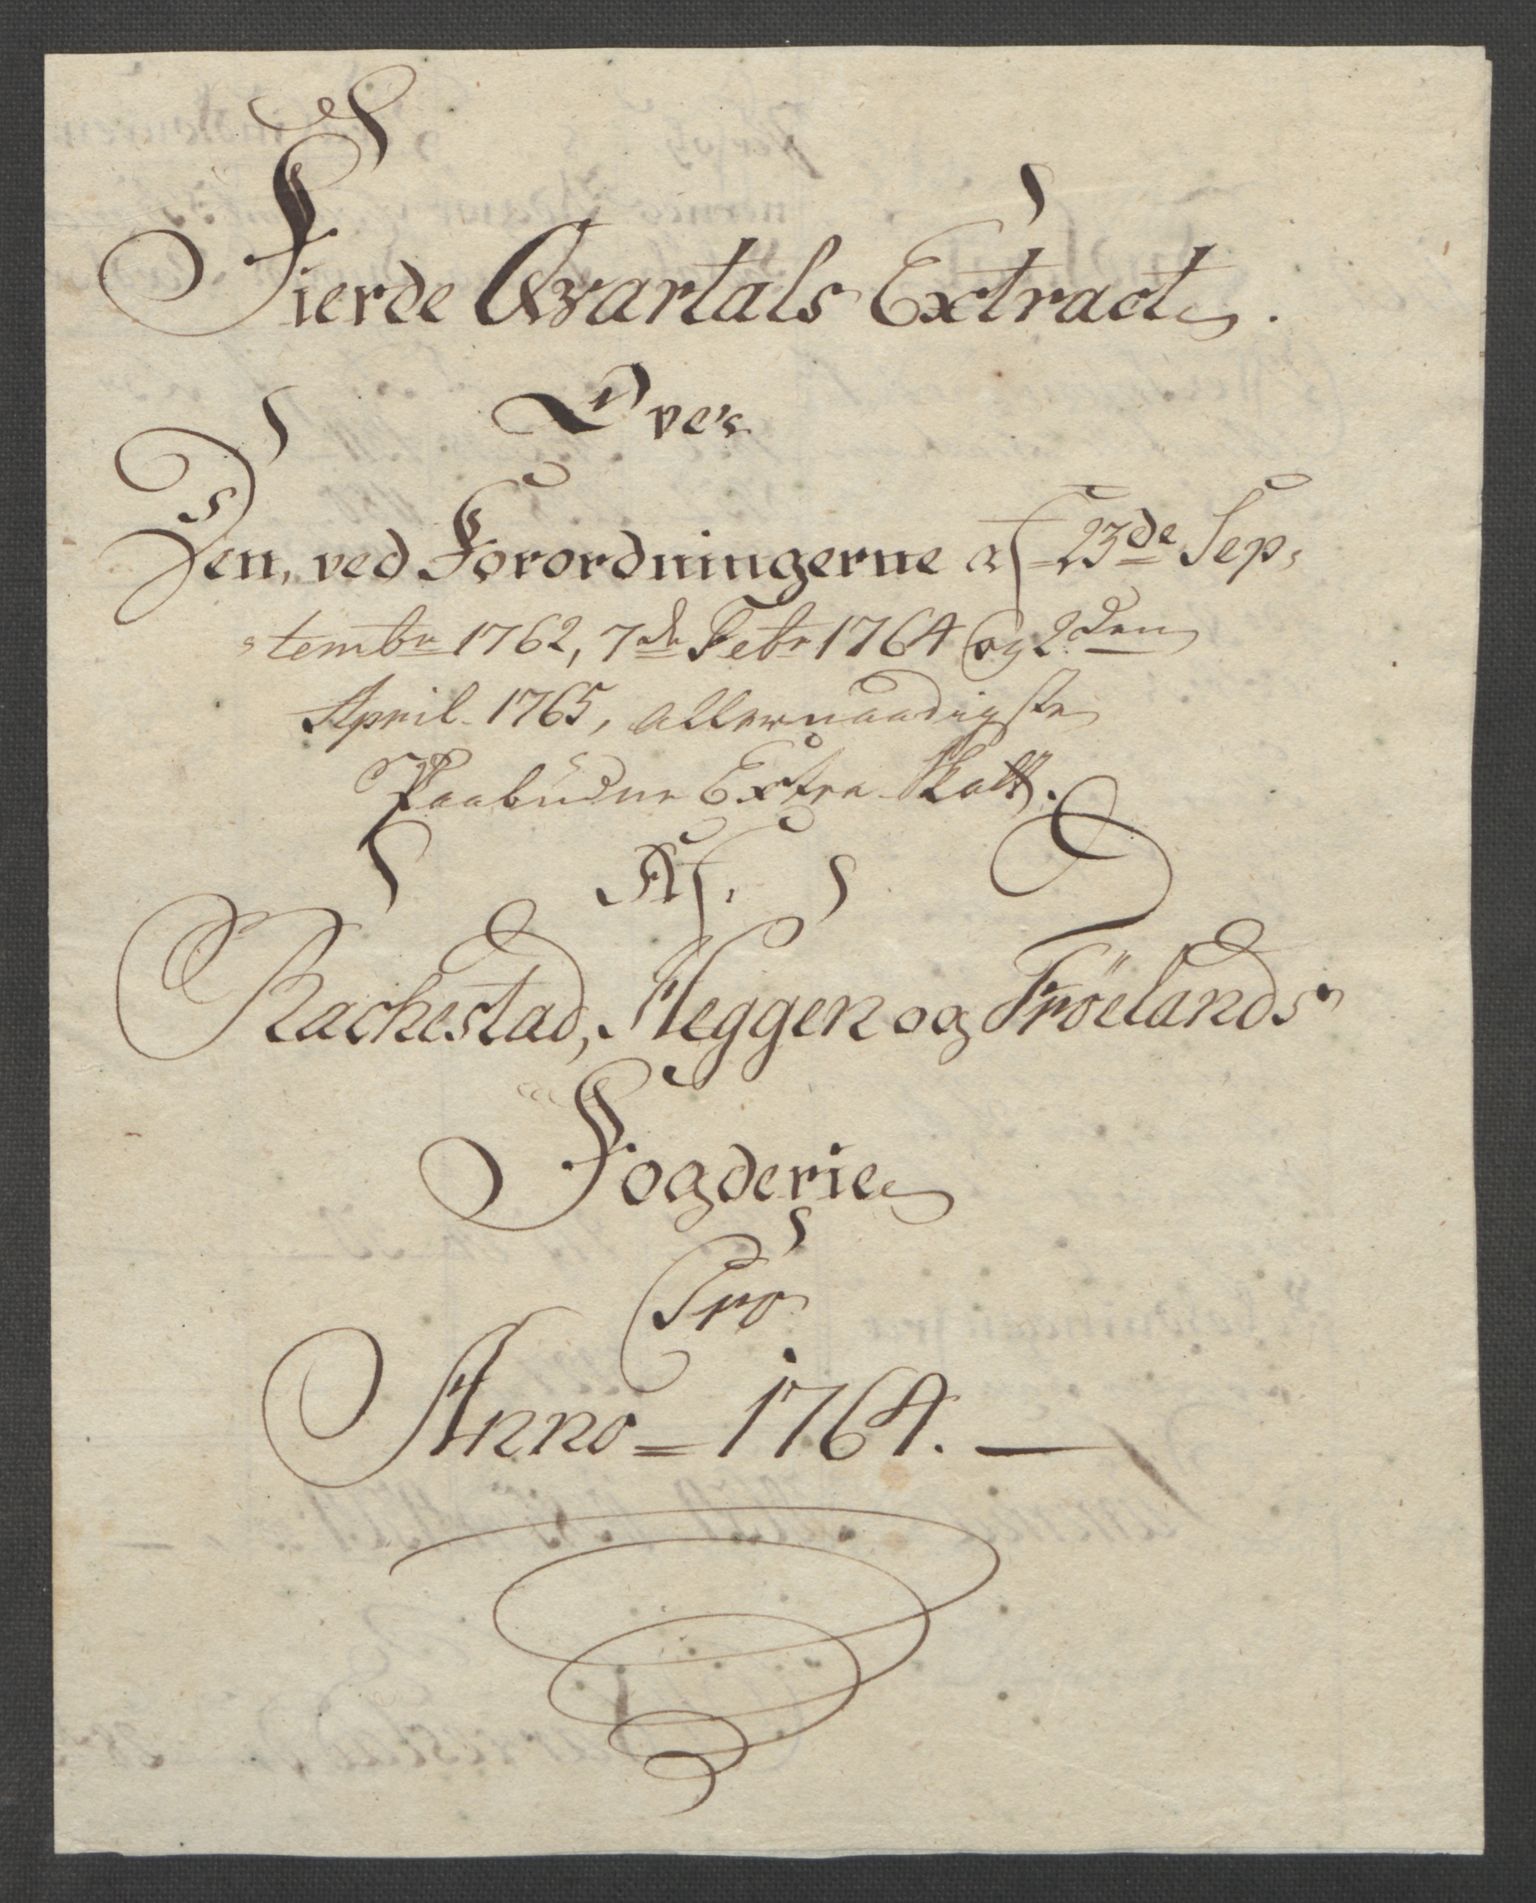 Fierde Qvartals Extract.
Over
Den, ved Forordningerne af 23de Sep,,
tembr 1762, 7de Febr 1764 og 2den
April 1765, allernaadigste
Paabudne Extra Skatt.
Af.
Rachestad, Heggen og Fröelands
Fogderie
Pro
Anno = 1764. —